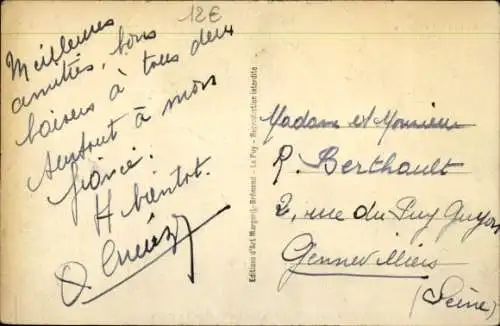 12€
Meilleures
amitiés, bons
baisers à tous deux
surtout à mon
fiancé.
A bientôt.
Editions d'Art Margerit-Brémond - Le Puy - Reproduction interdite
Madame et Monsieur
R. Berthault
2, rue du Puy Guyon
Gennevilliers
(Seine)